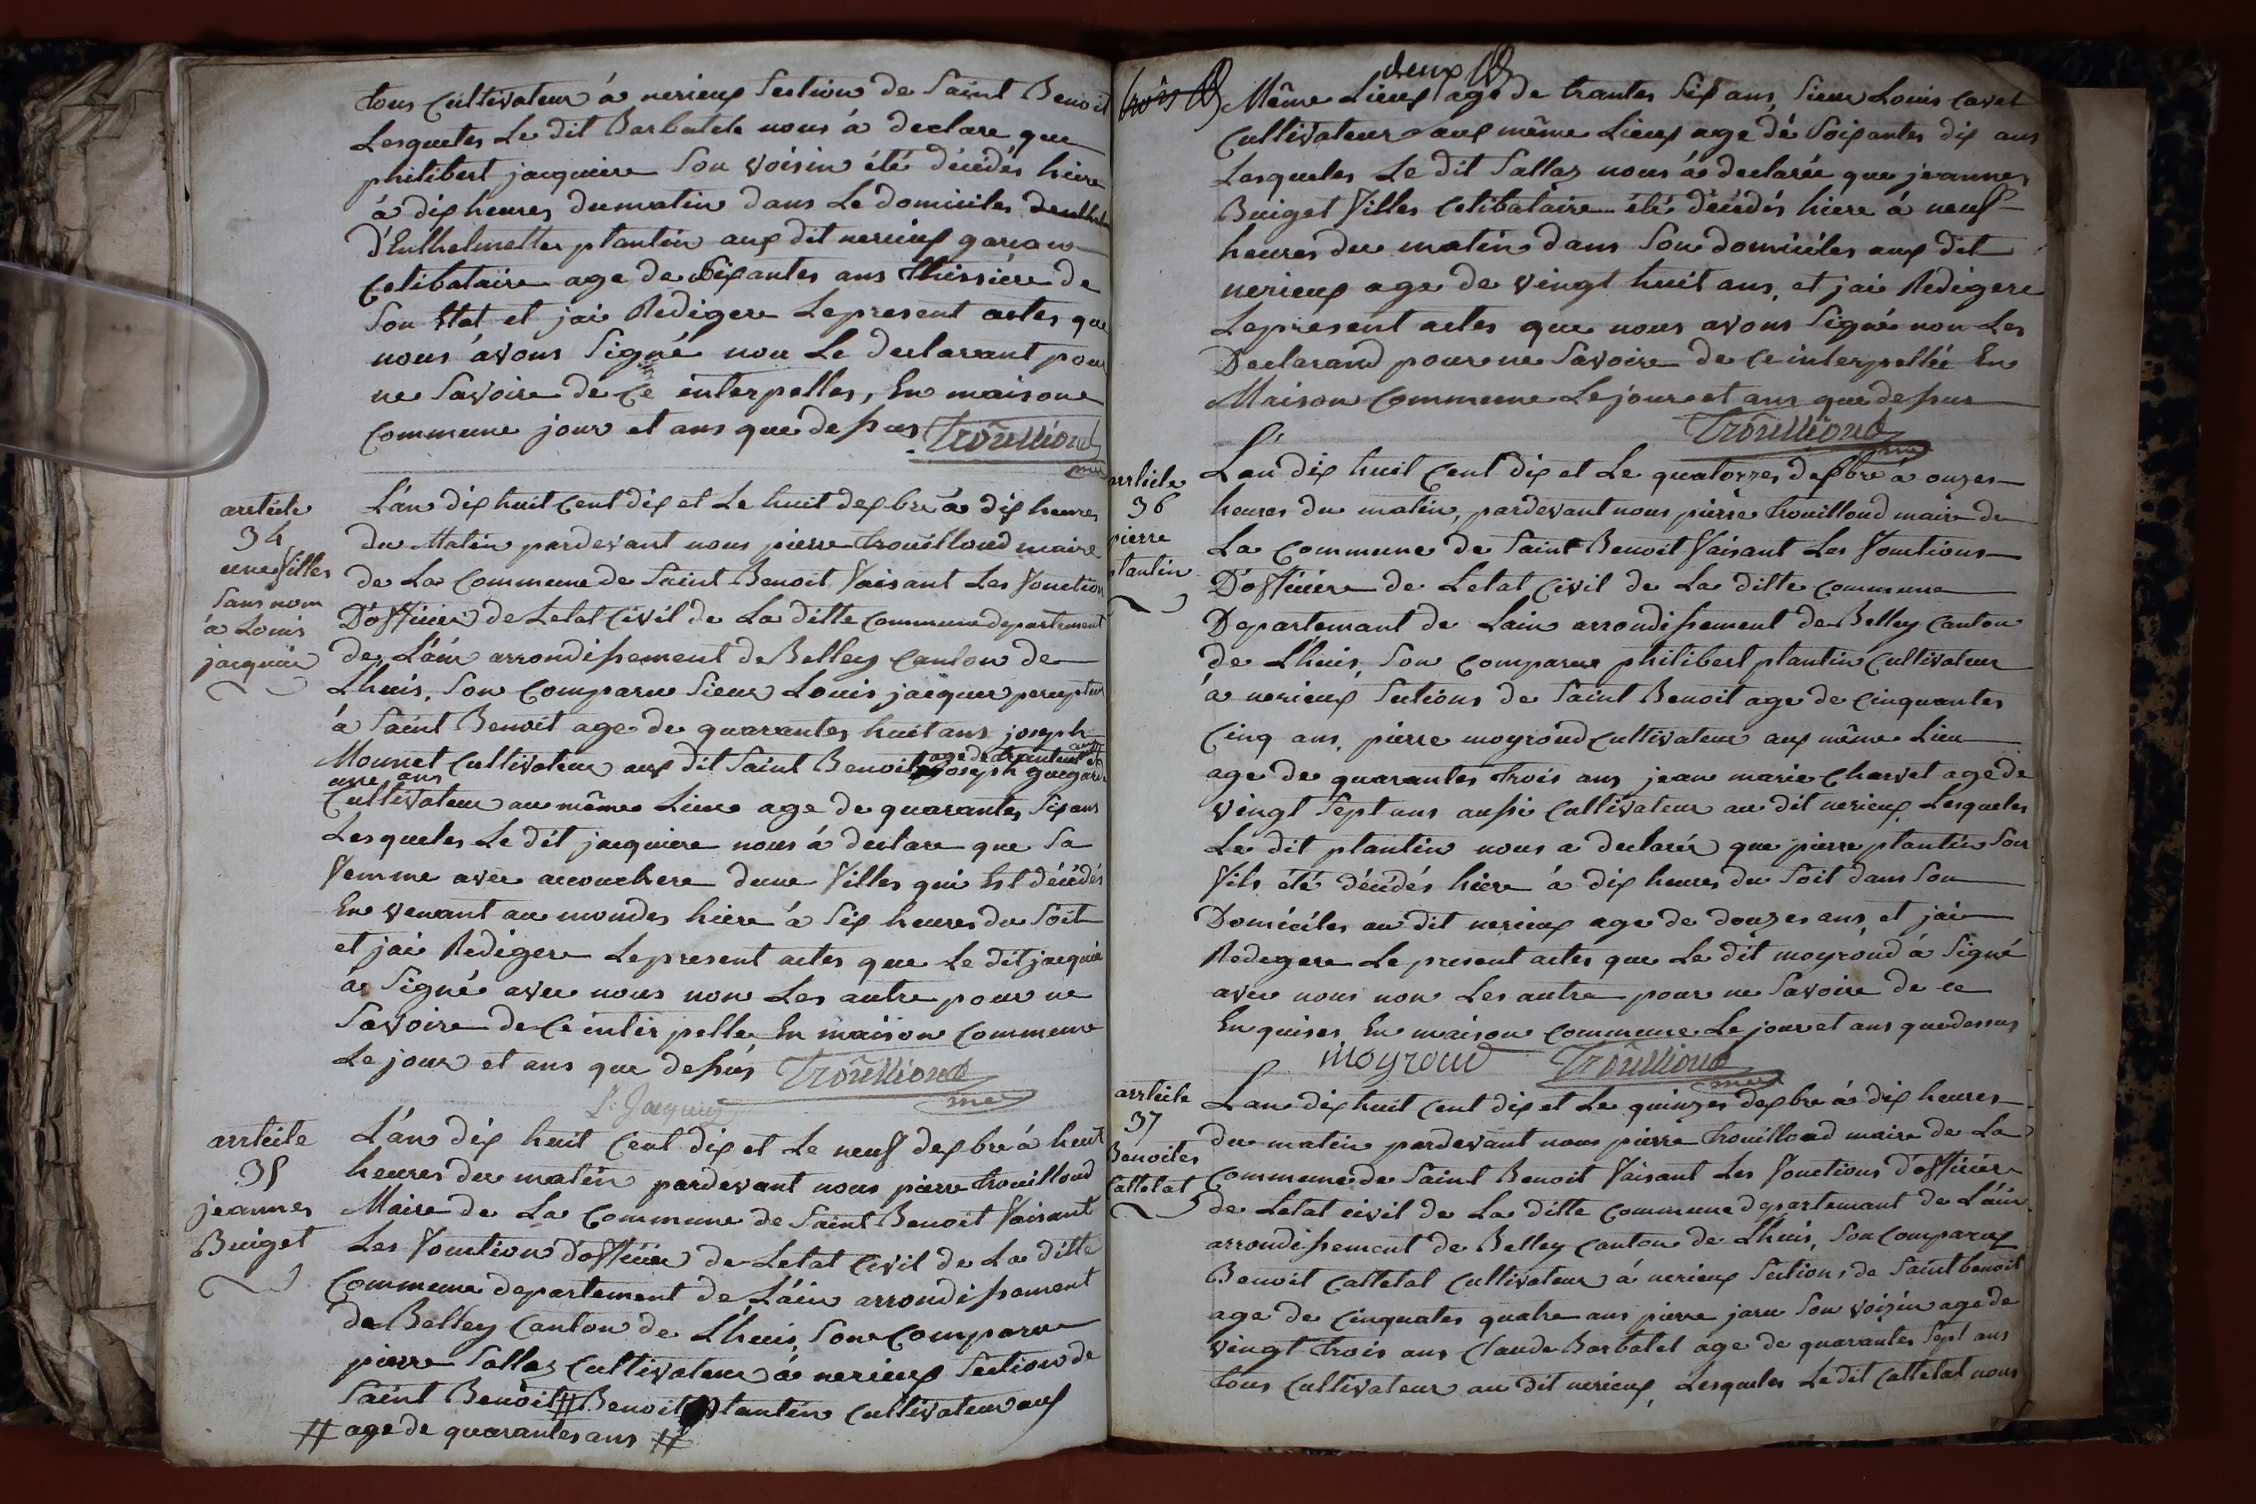 tous Cultivateur á nerieux Section de Saint Benoit
Lesqueles Le dit Barbatele nous á declare que
philibert jacquiere Son Voisin été décédés hiere
á dix heures dumatin dans Le domiciles
d'Enthelmettes plantin aux dit nerieux garcon
Celibataire age de Sixantes ans thissiere de
Son Etat et jai Redigere Lepresent actes que
nous avons Signé non Le declarant pour
ne Savoire de Ce interpelles, En maisone
Commune jour et ans que dessus Trouilloud
me
article
34
une filles
Sans nom
á Louis
jacquier
L'an dix huit Cent dix et Le huit dexbre á dix heures
du Matin pardevant nous pierre trouilloud maire
de La Commune de Saint Benoit faisant Les fonction
D'officier de Letat Civil de La ditte Commune departement
de L'ain arrondissement de Belley Canton de
Lhuis, Son Comparu Sieur Louis jacquer percepteur
á Saint Benoit age de quarantes huit ans joseph
Mounet Cultivateur aux dit Saint Benoit age de trantent et joseph guigard
une ans
Cultivateur au même Lieux age de quarantes Six ans
Lesqueles Le dit jacquiere nous á declare que Sa
femme avec accouchere dune filles qui Est décédés
En venant au mondes hiere á Six heures du Soit
et jai Redigere Lepresent actes que Le dit jacquié
á Signé avec nous non Les autre pour ne
Savoire de Ce interpelle En maison Commune
Le jour et ans que dessus Trouilloud
me
L. Jacquier
article
35
jeannes
Buiget
L'an dix huit Cent dix et Le neuf dexbre á huit
heures du matin pardevant nous pierre trouilloud
Maire de La Commune de Saint Benoit faisant
Les fonction d'officier de Letat Civil de La ditte
Commune departement de L'ain arrondissement
de Belley Canton de Lhuis, Son Comparu
pierre Sallaz Cultivateur á nerieux Section de
Saint Benoit # Benoit plantin Cultivateur aux
# age de quarantes ans #
deux
trois
Même Lieux age de trantes Six ans, Sieur Louis Cavet
Cultivateur aux même Lieux age de Soixantes dix ans
Lesqueles Le dit Sallaz nous á declarée que jeannes
Buiget filles Celibataire été décédés hiere á neuf
heures du matin dans Son domiciles aux dit
nerieux age de vingt huit ans, et jai Redigere
Lepresent actes que nous avons Signé non Les
Declarand pour ne Savoire de Ce interpellée En
Maison Commune Le jour et ans que dessus
Trouilloud
me
article
36
pierre
plantin
L'an dix huit Cent dix et Le quatorzes dexbre á onzes
heures du matin, pardevant nous pierre trouilloud maire de
La Commune de Saint Benoit faisant Les fonctions
D'officiere de Letat Civil de La ditte Commune
Departemant de Lain arrondissement de Belley Canton
de Lhuis, Son Comparue philibert plantin Cultivateur
á nerieux Sections de Saint Benoit age de Cinquantes
Cinq ans, pierre moyroud Cultivateur aux même Lieu
age de quarantes trois ans, jean marie Charvet age de
vingt Sept ans aussi Cultivateur au dit nerieux Lesqueles
Le dit plantin nous a declarés que pierre plantin Son
fils été décédés hiere á dix heures du Soit dans Son
Domiciles au dit nerieux age de douzes ans, et jai
Redegere Le present actes que Le dit moyroud á Signé
avec nous non Les autre pour ne Savoire de ce
Enquises En maison Commune Le jour et ans que dessus
moyroud Trouilloud
me
article
37
Benoites
Cattelat
L'an dix huit Cent dix et Le quinzes dexbre á dix heures
du matin pardevant nous pierre trouilloud maire de La
Commune de Saint Benoit faisant Les fonctions d'officier
de Letat civil de La ditte Commune departemant de L'ain
arrondissement de Belley Canton de Lhuis, Son Comparux
Benoit Cattelat Cultivateur á nerieux Sections de Saint benoit
age de Cinquates quatre ans pierre jaru Son voisin age de
vingt trois ans Claude Barbatel age de quarantes Sept ans
tous Cultivateur au dit nerieux, Lesqueles Le dit Cattelat nous